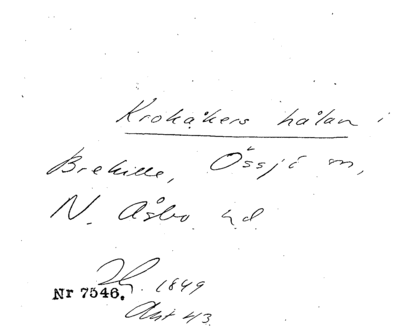 Krokåkers hålan i
Brehille, Össjö m,
N. Åsbo hd.
1849
Nr 7546.
Akt 43.